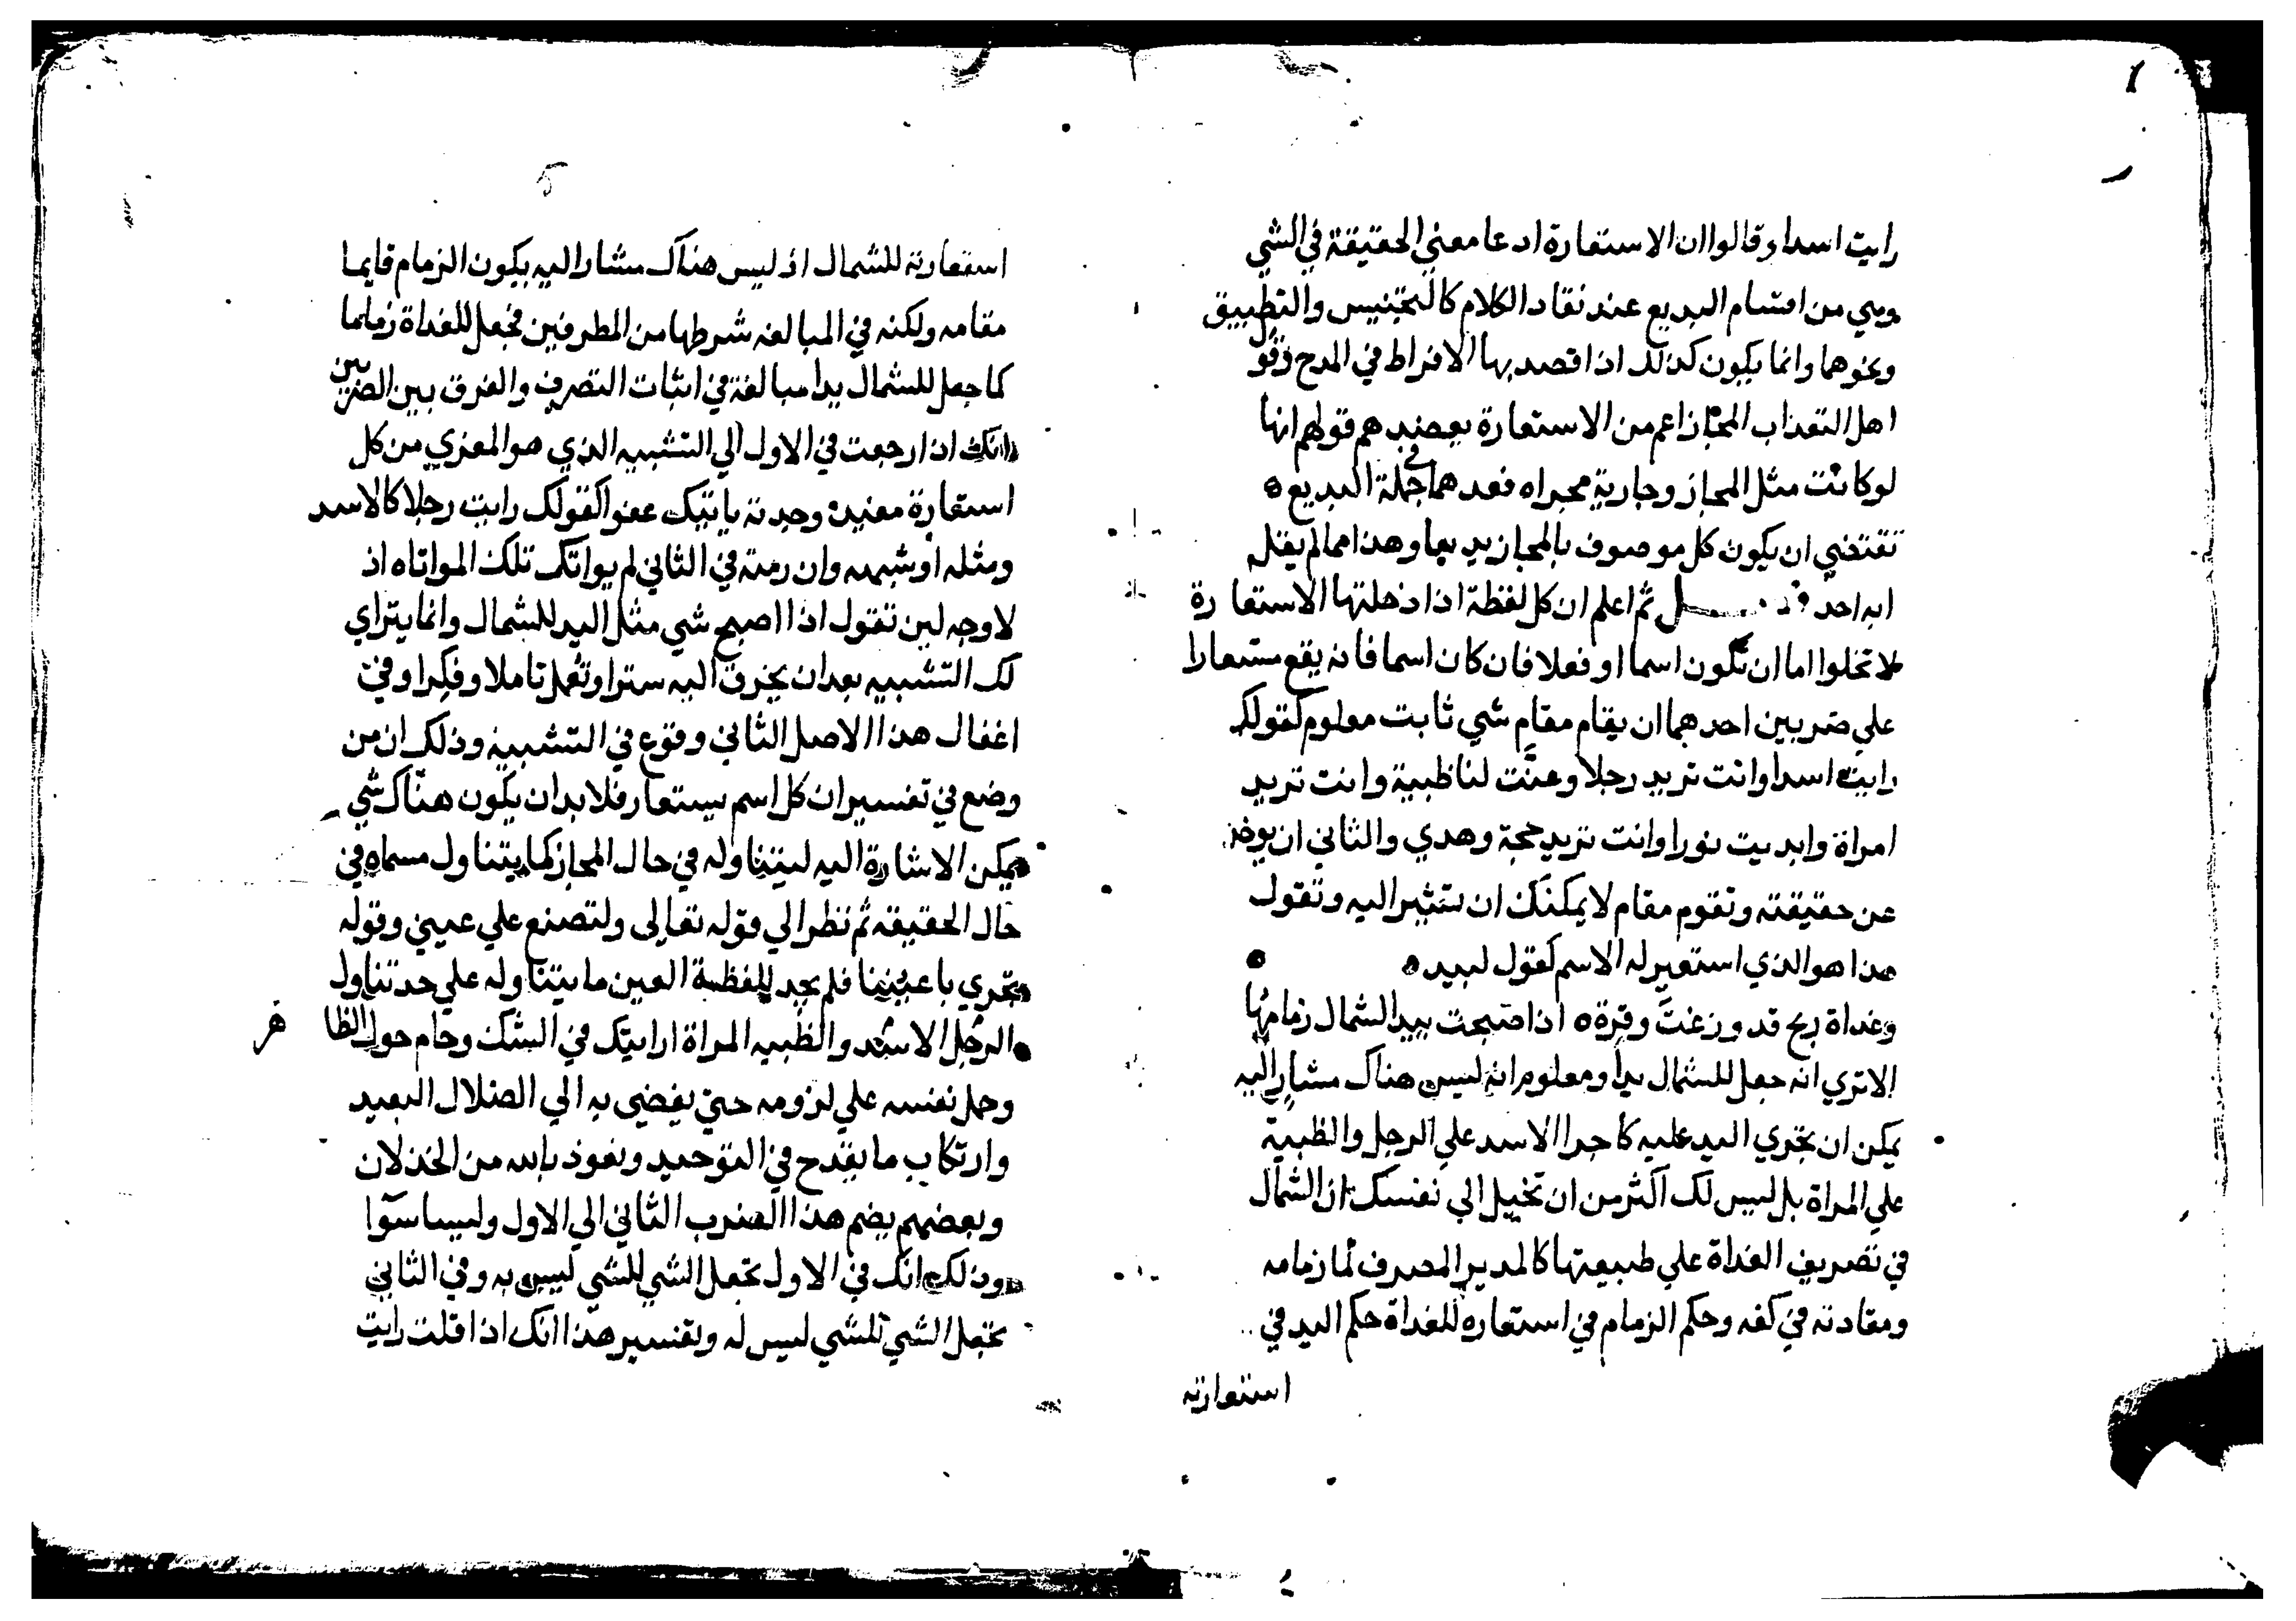 رايت اسدا وقالوا ان الاستعارة ادعا معني الحقيقة في الشي
وهي من اقسام البديع عند نقاد الكلام كالتجنيس والتطبيق
ونحوهما وانما يكون كذلك اذا قصد بها الافراط في المدح وقول
اهل التعداب المجاز اعم من الاستعارة بعضهم قولهم انها
لو كانت مثل المجاز وجارية مجراه فعدهما في جملة البديع ه
تقتضي ان يكون كل موصوف بالمجاز بديعا وهذا مما لم يقل
به احد فصل ثم اعلم ان كل لفظة اذا دخلتها الاستعارة
لا تخلوا اما ان تكون اسما او فعلا فان كان اسما فانه يقع مستعارا
علي ضربين احدهما ان يقام مقام شي ثابت معلوم كقولك
رايت اسدا وانت تريد رجلا وعنَّت لنا ظبية وانت تريد
امراة وابديت نورا وانت تريد حجة وهدي والثاني ان يوخذ
عن حقيقته وتقوم مقام لا يمكنك ان تشير اليه وتقول
هذا هو الذي استعير له الاسم كقول لبيد ه
وغداة ريح قد وزعت وقرة ه اذ اصبحت بيد الشمال زمامها
الا تري انه جعل للشمال يدا ومعلوم انه ليس هناك مشار اليه
يمكن ان تجري اليد عليه كاجرا الاسد علي الرجل والظبية
علي المراة بل ليس لك اكثر من ان تخيل الي نفسك ان الشمال
في تصريف الغداة علي طبيعتها كالمدير المصرف لما زمامه
ومقادته في كفه وحكم الزمام في استعاره للغداة حكم اليد في
استعارته
استعارته للشمال اذ ليس هناك مشار اليه يكون الزمام قايما
مقامه ولكنه في المبالغه شرطها من الطرفين فجعل للغداة زماما
كما جعل للشمال يدا مبالغة في اثبات التصرف والفرق بين الضربين
انك اذا رجعت في الاول الي التشبيه الذي هو المغزي من كل
استعارة مفيدة وجدته ياتيك عفوا كقولك رايت رجلا كالاسد
ومثله او شبهه وان رمته في الثاني لم يواتك تلك المواتاه اذ
لا وجه لين تقول اذا اصبح شي مثل اليد للشمال وانما يتراي
لك التشبيه بعد ان تخرق اليه سترا وتعمل تاملا وفكرا وفي
اغفال هذا الاصل الثاني وقوع في التشبيه وذلك ان من
وضع في تفسير ان كل اسم يستعار فلا بد ان يكون هناك شي
يمكن الاشارة اليه ليتناوله في حال المجاز كما يتناول مسماه في
حال الحقيقه ثم نظر الي قوله تعالى ولتصنع علي عيني وقوله
تجري باعيننا فلم يجد للفظة العين ما يتناوله علي حد تناول
الرجل الاسد والظبيه المراة ارابتك في الشك وحام حول الظاهر
وحمل نفسه علي لزومه حتي يفضي به الي الضلال البعيد
وارتكاب ما يقدح في التوحيد ونعوذ بالله من الخذلان
وبعضهم يضم هذا الضرب الثاني الي الاول وليسا سوآ
وذلك انك في الاول تجعل الشي للشي ليس به وفي الثاني
تجعل الشي للشي ليس له وتفسير هذا انك اذا قلت رايت